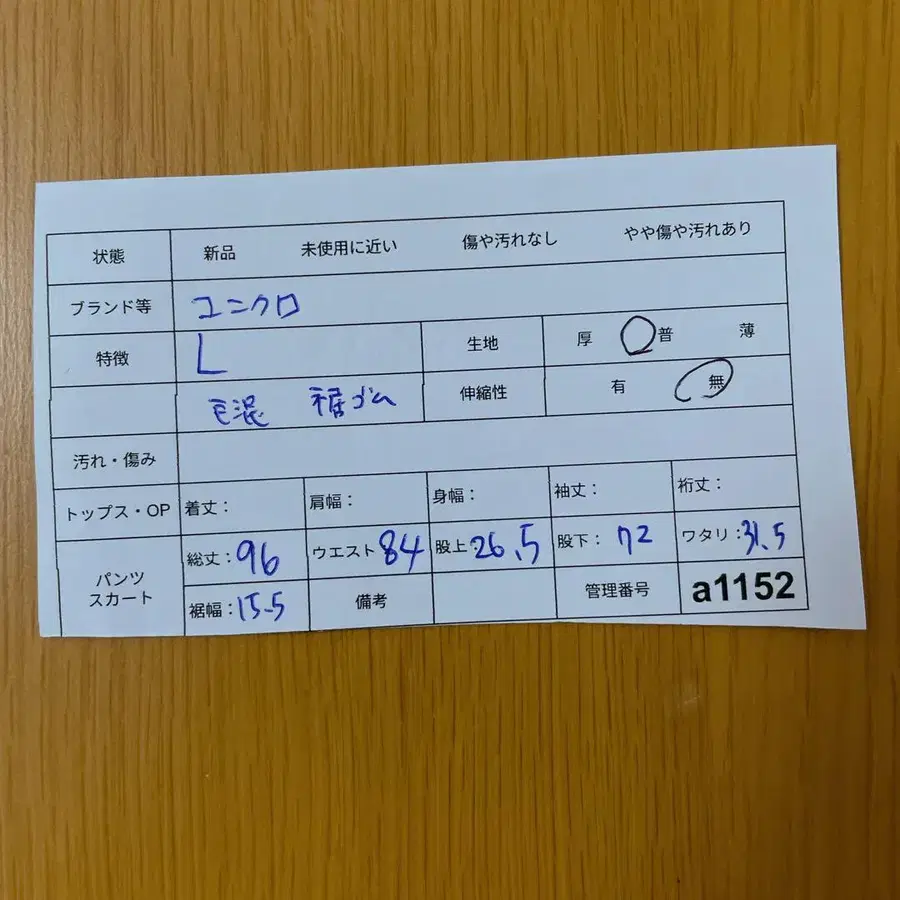 状態 新品 未使用に近い 傷や汚れなし やや傷や汚れあり
ブランド等 ユニクロ
特徴 L 生地 厚 普 薄
毛混 裾ゴム 伸縮性 有 無
汚れ・傷み
トップス・OP 着丈: 肩幅: 身幅: 袖丈: 裄丈:
パンツ スカート 総丈:96 ウエスト84 股上:26.5 股下:72 ワタリ:31.5
裾幅:15.5 備考 管理番号 a1152